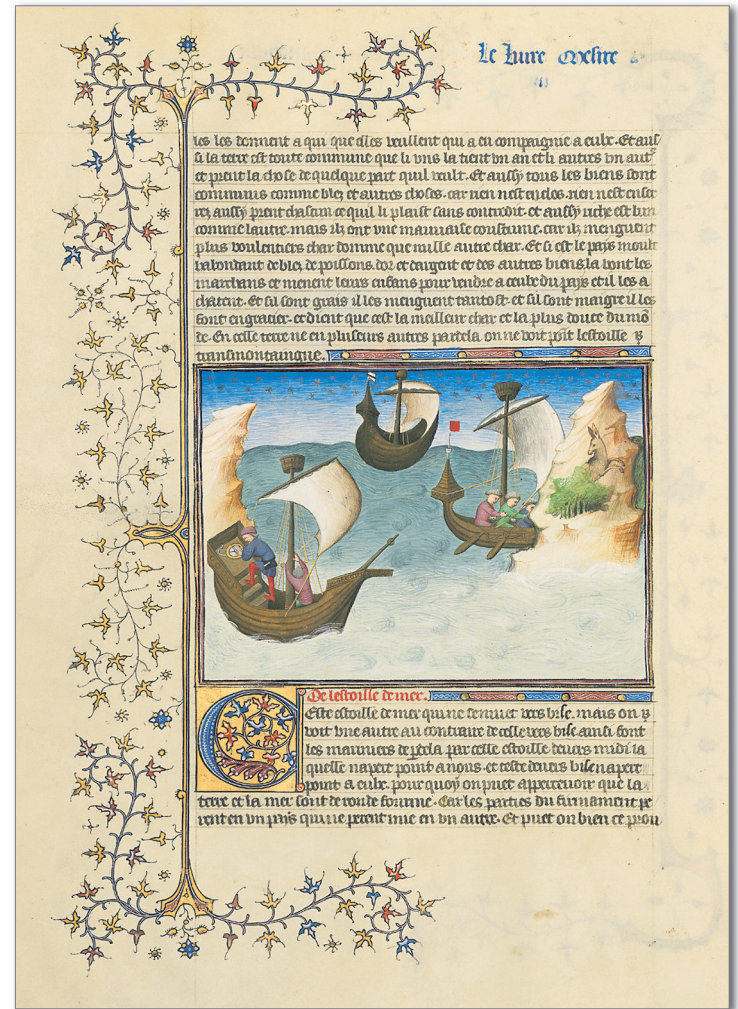 Le livre Messire
les les donnent a qui que elles veullent qui a eu compaignie a eulx. Et aussi
si la terre est toute commune que li vns la tient vn an et li autres vn autre
et prent la chose de quelque part quil veult. Et aussy tous les biens sont
communs comme blez et autres choses. car rien nest enclos. rien nest enserrez
aussy prent chascun ce quil li plaist sans contredit. et aussy riche est lun
comme lautre. mais ilz ont vne mauuaise coustume. car ilz menguent
plus voulentiers char domme que mille autre char. Et si est le pays moult
habondant de blez. de poissons. dor et dargent et des autres biens. la vont les
marchans et menent leurs enfans pour vendre a ceulx du pays et il les a
chatent. Et sil sont gras il les menguent tantost. et sil sont maigre il les
font engraitier. et dient que cest la meilleur char et la plus douce du mon
de. En celle terre ne en pluseurs autres par dela on ne voit point lestoille
transmontaingne.
De lestoille de mer.
Ceste estoille de mer qui ne se muet vers bise. mais on
voit vne autre au contraire de celle vers bise ainsi font
les mariniers de par dela par celle estoille deuers midi la
quelle napert point a nous. et ceste deuers bise napert
point a eulx. pour quoy on puet apperceuoir que la
terre et la mer sont de ronde fourme. Car les parties du firmament pe
rent en vn pays qui ne perent mie en vn autre. Et puet on bien ce prou